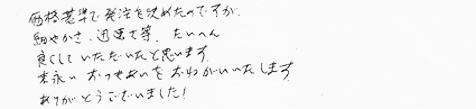 価格基準で発注を決めたのですが、
細やかさ、迅速で等、たいへん
良くしていただいたと思います。
末永いおつきあいをおねがいいたします。
ありがとうございました!